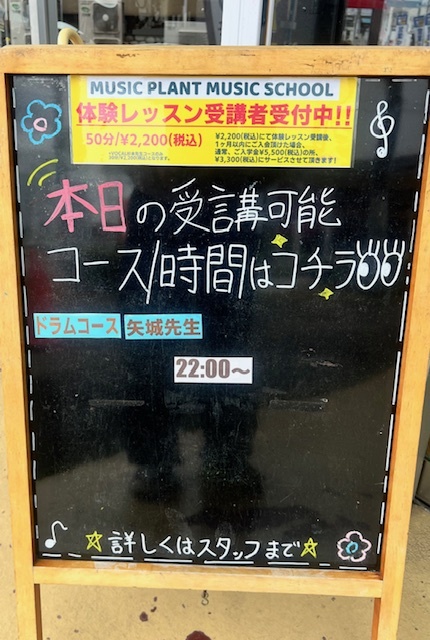 MUSIC PLANT MUSIC SCHOOL
体験レッスン受講者受付中!!
50分/¥2,200(税込)
¥2,200(税込)にて体験レッスン受講後、
1ヶ月以内にご入会頂けた場合、
通常、ご入学金¥5,500(税込)の所、
¥3,300(税込)にサービスさせて頂きます!
本日の受講可能
コース/時間はコチラ
ドラムコース 矢城先生
22:00〜
詳しくはスタッフまで